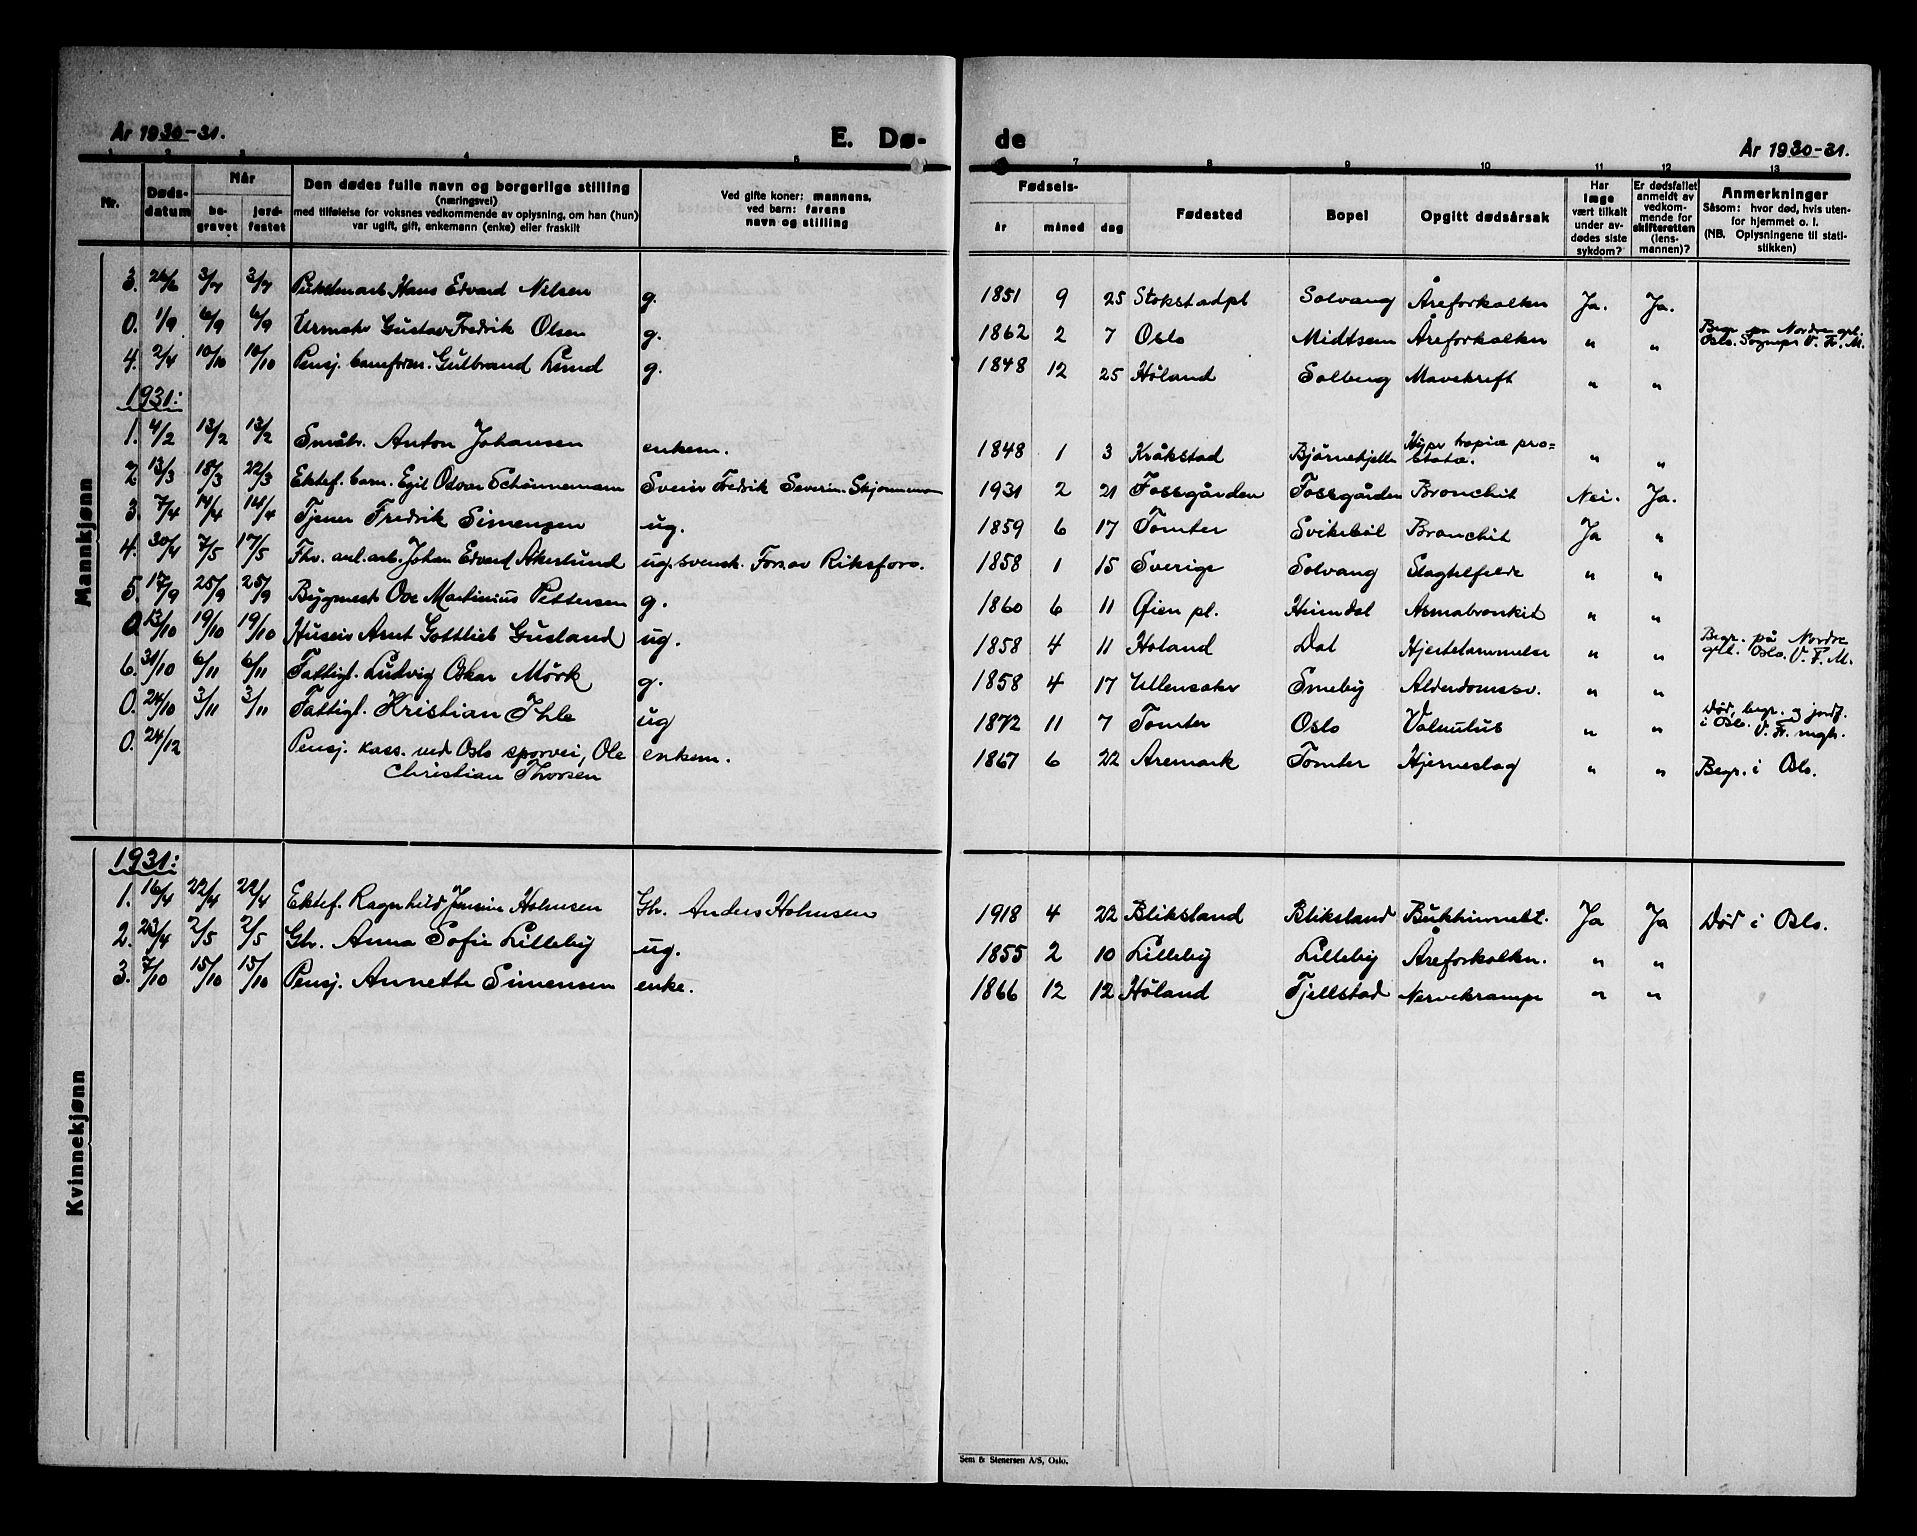 År 1930-31.
E. Dø-
de
År 1930-31.
1 2 3 4 5 7 8 9 10 11 12 13
Nr.
Døds-
datum
Når
be-
gravet
jord-
festet
Den dødes fulle navn og borgerlige stilling
(næringsvei)
med tilføielse for voksnes vedkommende av oplysning, om han (hun)
var ugift, gift, enkemann (enke) eller fraskilt
Ved gifte koner: mannens,
ved barn: farens
navn og stilling
Fødsels-
år måned dag
Fødested
Bopel
Opgitt dødsårsak
Har
læge
vært tilkalt
under av-
dødes siste
sykdom?
Er dødsfallet
anmeldt av
vedkom-
mende for
skifteretten
(lens-
mannen)?
Anmerkninger
Såsom: hvor død, hvis uten-
for hjemmet o. l.
(NB. Oplysningene til stati-
stikken)
Mannkjønn
3. 26/6 3/7 3/7 Hans Edvard Nilsen g. 1851 9 25 Stokstadpl Solvang Åreforkalkn Ja. Ja.
0. 1/9 6/9 6/9 Urmakr Gustav Fredrik Olsen g. 1862 2 7 Oslo Midtsem Åreforkalkn " " Begr. på Nordre grl.
Oslo. Sognepr V. Fr. M.
4. 2/4 10/10 10/10 Pensj. baneform. Gulbrand Lund g. 1848 12 25 Høland Solberg Mavekreft " "
1931:
1. 4/2 13/2 13/2 Småbr. Anton Johansen enkem. 1848 1 3 Kråkstad Bjørnehjelle Hyper tropia pro=
stata. " "
2. 13/3 18/3 22/3 Ektef. barn. Egil Odvar Schønnemann Svein Fredrik Severin Skjønneman 1931 2 21 Fossgården Fossgården Bronchit Nei. Ja.
3. 7/4 14/4 14/4 Tjener Fredrik Simensen ug. 1859 6 17 Tomter Svikebøl Bronchit Ja "
4. 30/4 7/5 17/5 Fhv. anl.arb. Johan Edvard Åkerlund ug. svensk. Forsøv Riksfors. 1858 1 15 Sverige Solvang Slagtilfelde " "
5. 17/9 25/9 25/9 Bygmest Ove Martinius Pettersen g. 1860 6 11 Øien pl. Heimdal Asmabronkit " "
0. 13/10 19/10 19/10 Huseier Arnt Gottlieb Gusland ug. 1858 4 11 Høland Dal Hjertelammelse " " Begr. på Nordre
grl. Oslo. V. F. M.
6. 31/10 6/11 6/11 Fattigl. Ludvig Oskar Mørk g. 1858 4 17 Ullensaker Smeby Alderdomssv. " "
0. 24/10 3/11 3/11 Fattigl. Kristian Ihle ug 1872 11 7 Tomter Oslo Volvulus " " Død, begr. og jordf.
i Oslo. V. Fr. mgl.
0. 24/12 Pensj. kass. ved Oslo sporvei, Ole
Christian Thorsen enkem. 1867 6 22 Aremark Tomter Hjerneslag " " Begr. i Oslo.
Kvinnekjønn
1931:
1. 16/4 22/4 22/4 Ektef. Ragnhild Jensine Holmsen Gb. Anders Holmsen 1918 4 22 Blikstand Blikstand Bukhinnebt. Ja Ja Død i Oslo.
2. 23/4 2/5 2/5 Gb. Anna Sofie Lilleby ug. 1855 2 10 Lilleby Lilleby Åreforkalkn. " "
3. 7/10 15/10 15/10 Pensj. Annette Simensen enke. 1866 12 12 Høland Fjellstad Nervekrampe " "
Sem & Stenersen A/S, Oslo.